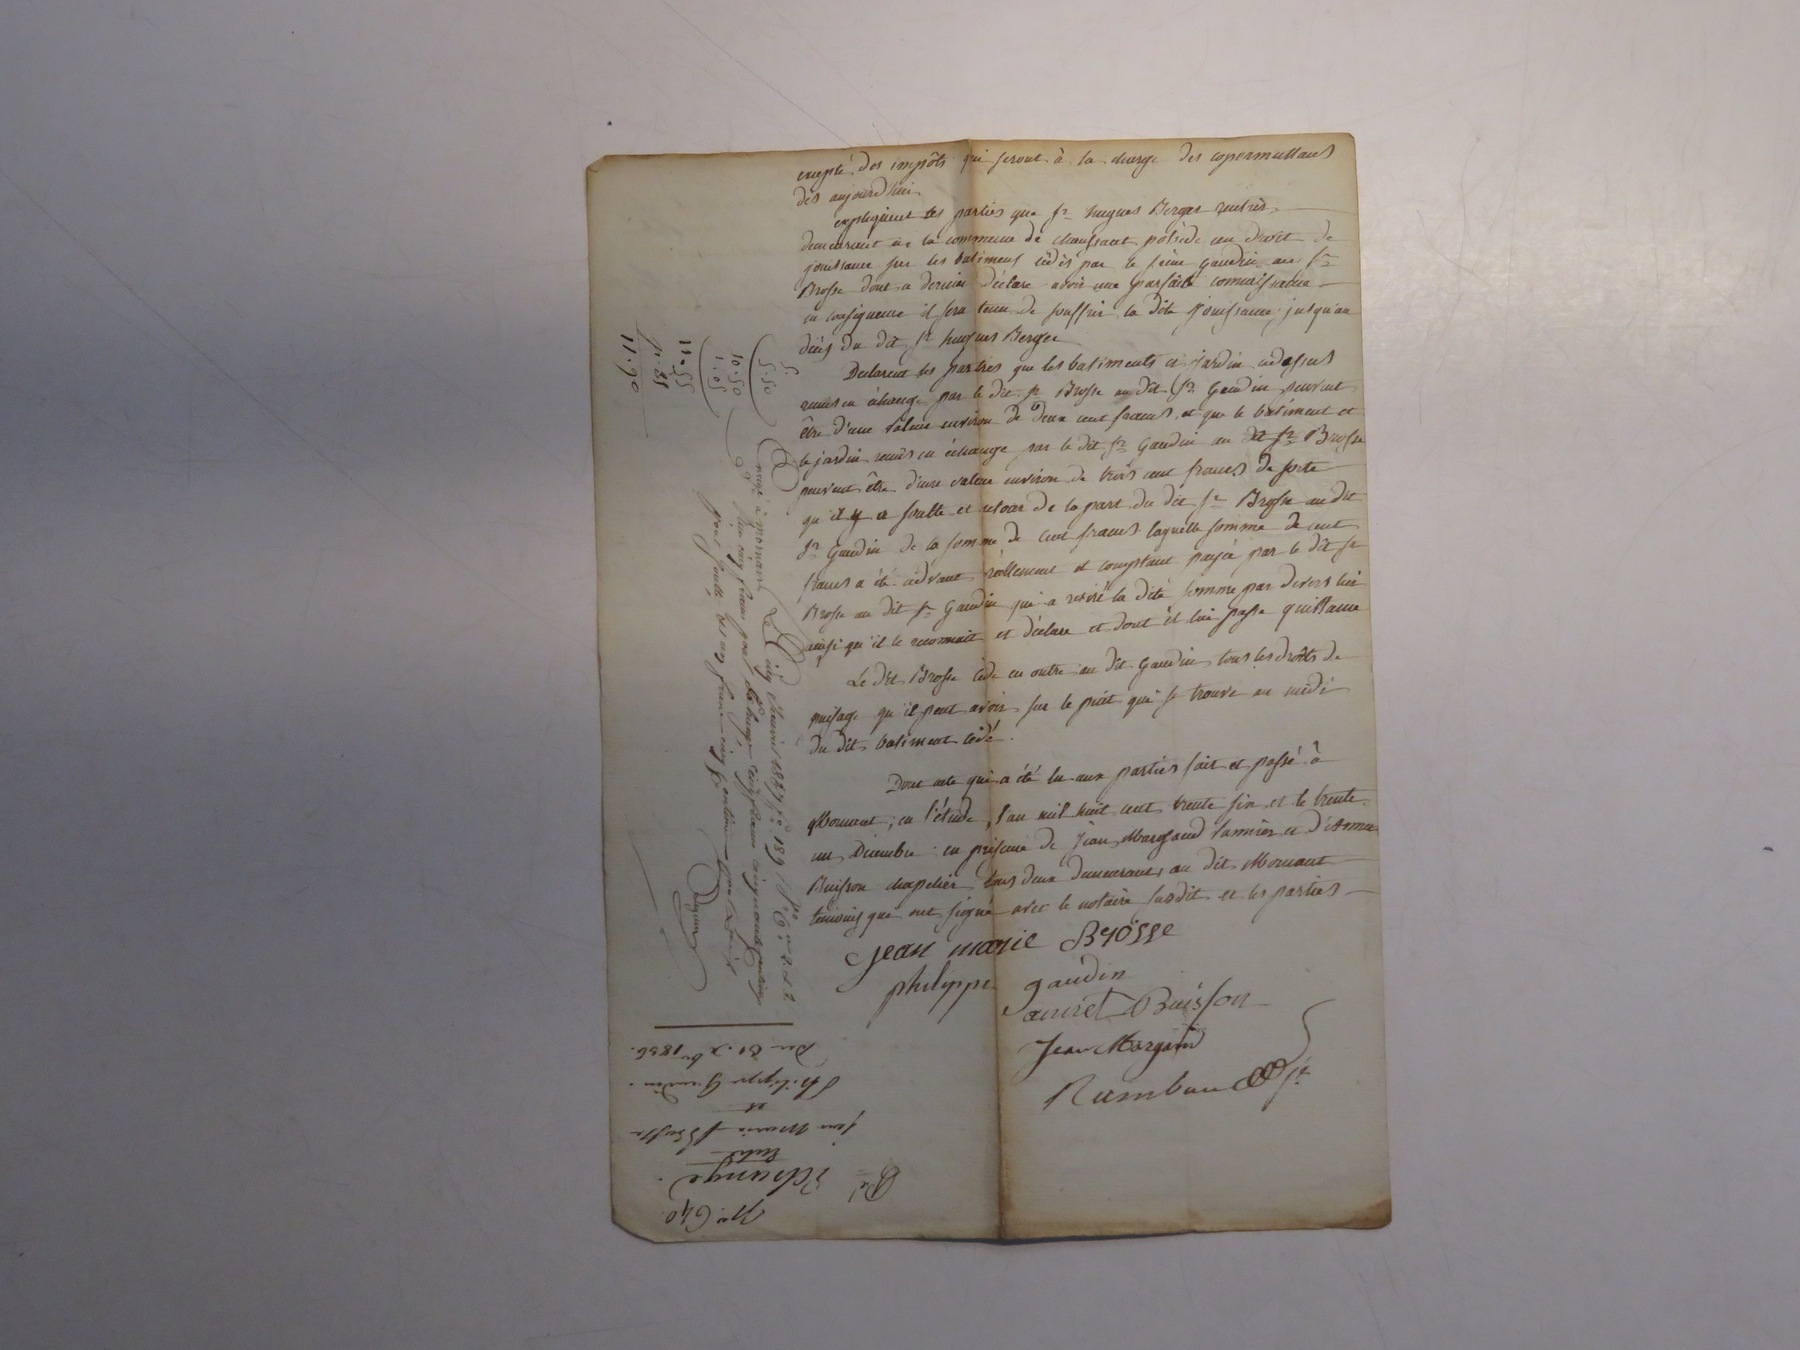 excepté des impôts qui seront à la charge des copermuttans
dès aujourd'hui.
expliquent les parties que sr hugues Berger rentier
demeurant en la commune de chaussant possède un droit de
jouissance sur les batiments cédés par le sieur Gaudin au sr
Brosse dont ce dernier déclare avoir une parfaite connaissance
en conséquence il sera tenu de souffrir la dite jouissance jusqu'au
décès du dit sr hugues Berger
Déclarent les parties que les batiments et jardin cidessus
remis en échange par le dit sr Brosse au dit sr Gaudin peuvent
être d'une valeur environ de deux cent francs, et que le batiment et
le jardin remis en échange par le dit sr Gaudin au dit sr Brosse
peuvent être d'une valeur environ de trois cent francs de sorte
qu'il y a soulte et retour de la part du dit sr Brosse au dit
sr Gaudin de la somme de cent francs laquelle somme de cent
francs a été cidevant réellement et comptant payée par le dit sr
Brosse au dit sr Gaudin qui a retiré la dite somme par devers lui
ainsi qu'il le reconnait et déclare et dont il lui passe quittance
Le dit Brosse cède en outre au dit Gaudin tous les droits de
puisage qu'il peut avoir sur le puit qui se trouve au midi
du dit batiment cédé.
Dont acte qui a été lu aux parties fait et passé à
Mornant, en l'étude, l'an mil huit cent trente six et le trente
un Décembre en présence de Jean Margand tannier et d'Annet
Buisson chapelier tous deux demeurant au dit Mornant
témoins qui ont signé avec le notaire susdit et les parties
jean marie Brosse
philippe gaudin
annet Buisson
Jean Margand
Rambau
5.
5.50
10.50
1.05
11.55
11.90
Enregé à mornant Le Cinq Janvier 1837 fo 189
cinq francs pour Echange cinq francs cinquante centimes
pour soulte
No 640.
Echange.
Entre
jean Marie Brosse
et
Philippe Gaudin.
Du 31 xbre 1836.